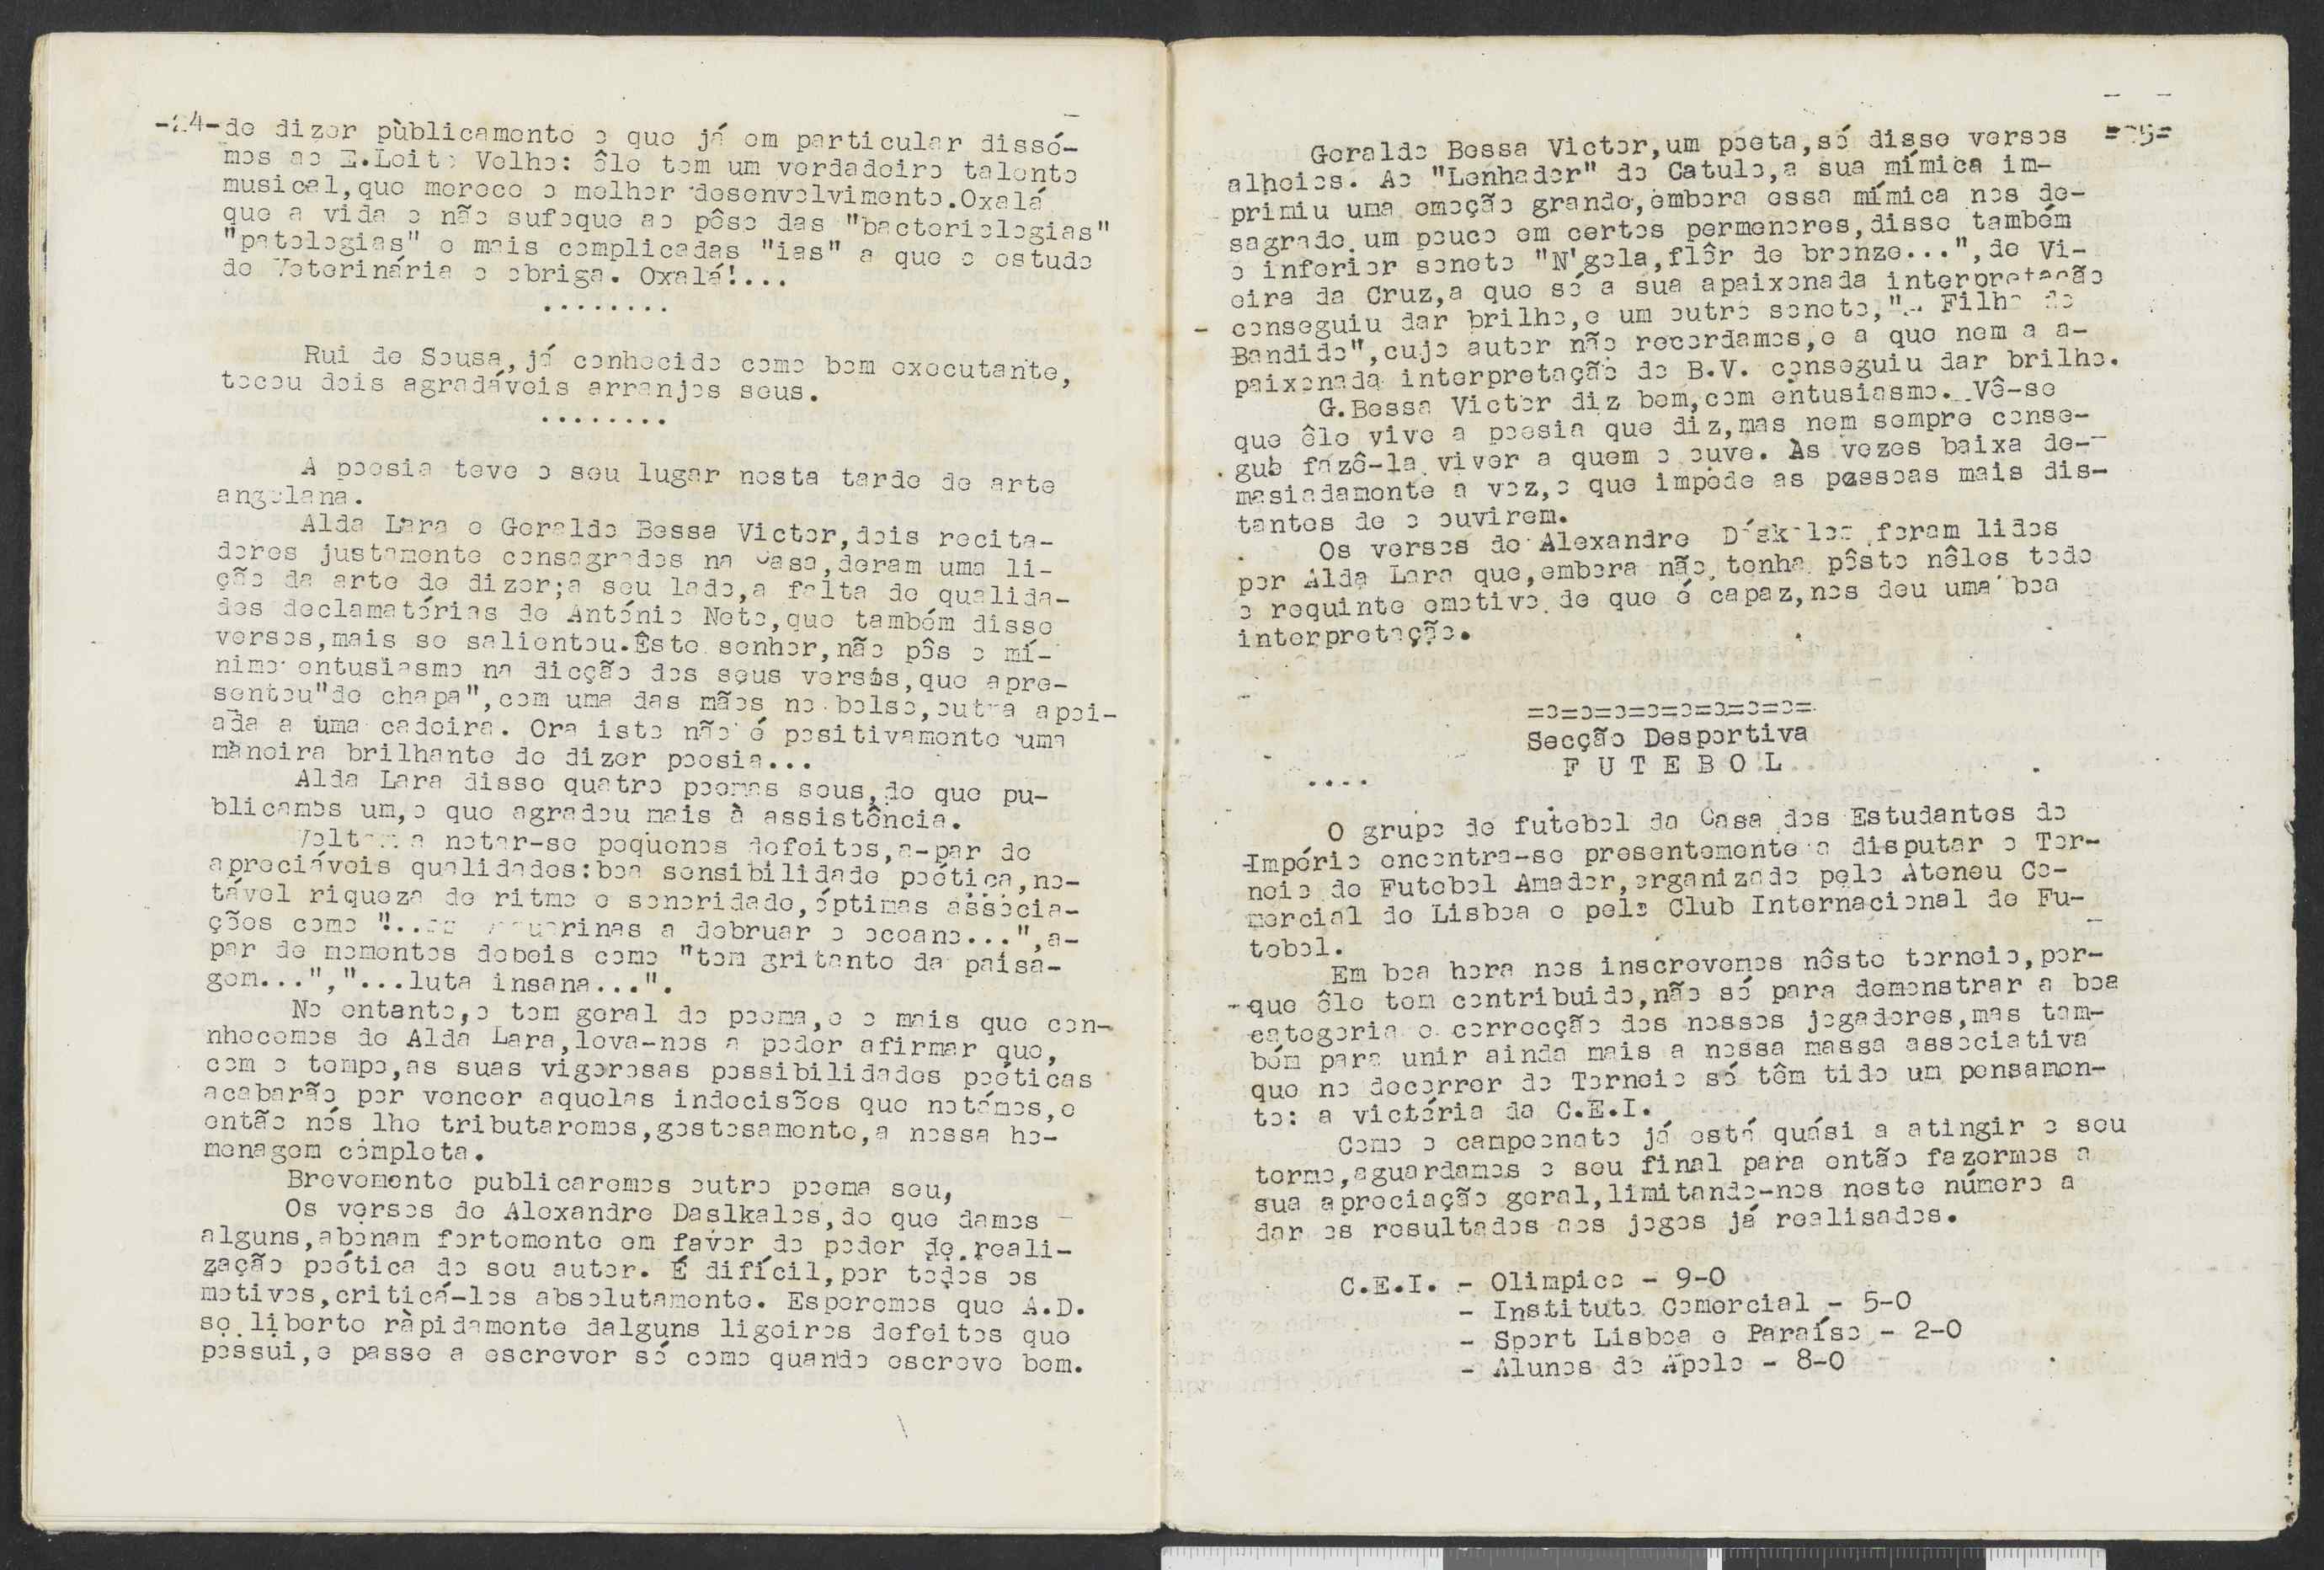 -24-de dizer pùblicamente o que já em particular dissé-
mos ao E.Leite Velho: êle tem um verdadeiro talento
musical,que merece o melhor desenvolvimento.Oxalá
que a vida o não sufoque ao pêso das "bacteriologias"
"patologias" e mais complicadas "ias" a que o estudo
de Veterinária o obriga. Oxalá!...
........
Rui de Sousa,já conhecido como bom executante,
tocou dois agradáveis arranjos seus.
........
A poesia teve o seu lugar nesta tarde de arte
angolana.
Alda Lara e Geraldo Bessa Victor,dois recita-
dores justamente consagrados na Casa,deram uma li-
ção da arte de dizer;a seu lado,a falta de qualida-
des declamatórias de António Neto,que também disse
versos,mais se salientou.Êste senhor,não pôs o mí-
nimo entusiasmo na dicção dos seus versos,que apre-
sentou"de chapa",com uma das mãos no bolso,outra apoi-
ada a uma cadeira. Ora isto não é positivamente uma
maneira brilhante de dizer poesia...
Alda Lara disse quatro poemas seus,do que pu-
blicamos um,o que agradou mais à assistência.
Voltam a notar-se pequenos defeitos,a-par de
apreciáveis qualidades:boa sensibilidade poética,no-
tável riqueza de ritmo e sonoridade,óptimas associa-
ções como "... a debruar o oceano...",a-
par de momentos debeis como "tom gritante da paisa-
gem...","...luta insana...".
No entanto,o tom geral do poema,e o mais que con-
nhecemos de Alda Lara,leva-nos a poder afirmar que,
com o tempo,as suas vigorosas possibilidades poéticas
acabarão por vencer aquelas indecisões que notámos,e
então nós lhe tributaremos,gostosamente,a nossa ho-
menagem completa.
Brevemente publicaremos outro poema seu,
Os versos de Alexandre Daslkalos,do que damos
alguns,abonam fortemente em favor do poder de reali-
zação poética do seu autor. É difícil,por todos os
motivos,criticá-los absolutamente. Esperemos que A.D.
se liberte ràpidamente dalguns ligeiros defeitos que
possui,e passe a escrever só como quando escreve bem.
=25=
Geraldo Bessa Victor,um poeta,só disse versos
alheios. Ao "Lenhador" de Catulo,a sua mímica im-
primiu uma emoção grande,embora essa mímica nos de-
sagrade um pouco em certos permenores,disse também
o inferior soneto "N'gola,flôr de bronze...",de Vi-
eira da Cruz,a que só a sua apaixonada interpretação
conseguiu dar brilho,e um outro soneto," Filho do
Bandido",cujo autor não recordamos,e a que nem a a-
paixonada interpretação de B.V. conseguiu dar brilho.
G.Bessa Victor diz bem,com entusiasmo. Vê-se
que êle vive a poesia que diz,mas nem sempre conse-
gue fazê-la viver a quem o ouve. Às vezes baixa de-
masiadamente a voz,o que impede as pessoas mais dis-
tantes de o ouvirem.
Os versos de Alexandre Dáskalos foram lidos
por Alda Lara que,embora não tenha pôsto nêles todo
o requinte emotivo de que é capaz,nos deu uma boa
interpretação.
=o=o=o=o=o=o=o=o=
Secção Desportiva
F U T E B O L
....
O grupo de futebol da Casa dos Estudantes do
Império encontra-se presentemente a disputar o Tor-
neio de Futebol Amador,organizado pelo Ateneu Co-
mercial de Lisboa e pelo Club Internacional de Fu-
tebol.
Em boa hora nos inscrevemos nêste torneio,por-
que êle tem contribuido,não só para demonstrar a boa
categoria e correcção dos nossos jogadores,mas tam-
bém para unir ainda mais a nossa massa associativa
que no decorrer do Torneio só têm tido um pensamen-
to: a victória da C.E.I.
Como o campeonato já está quási a atingir o seu
termo,aguardamos o seu final para então fazermos a
sua apreciação geral,limitando-nos neste número a
dar os resultados aos jogos já realisados.
C.E.I. - Olimpico - 9-0
- Instituto Comercial - 5-0
- Sport Lisboa e Paraíso - 2-0
- Alunos de Apolo - 8-0